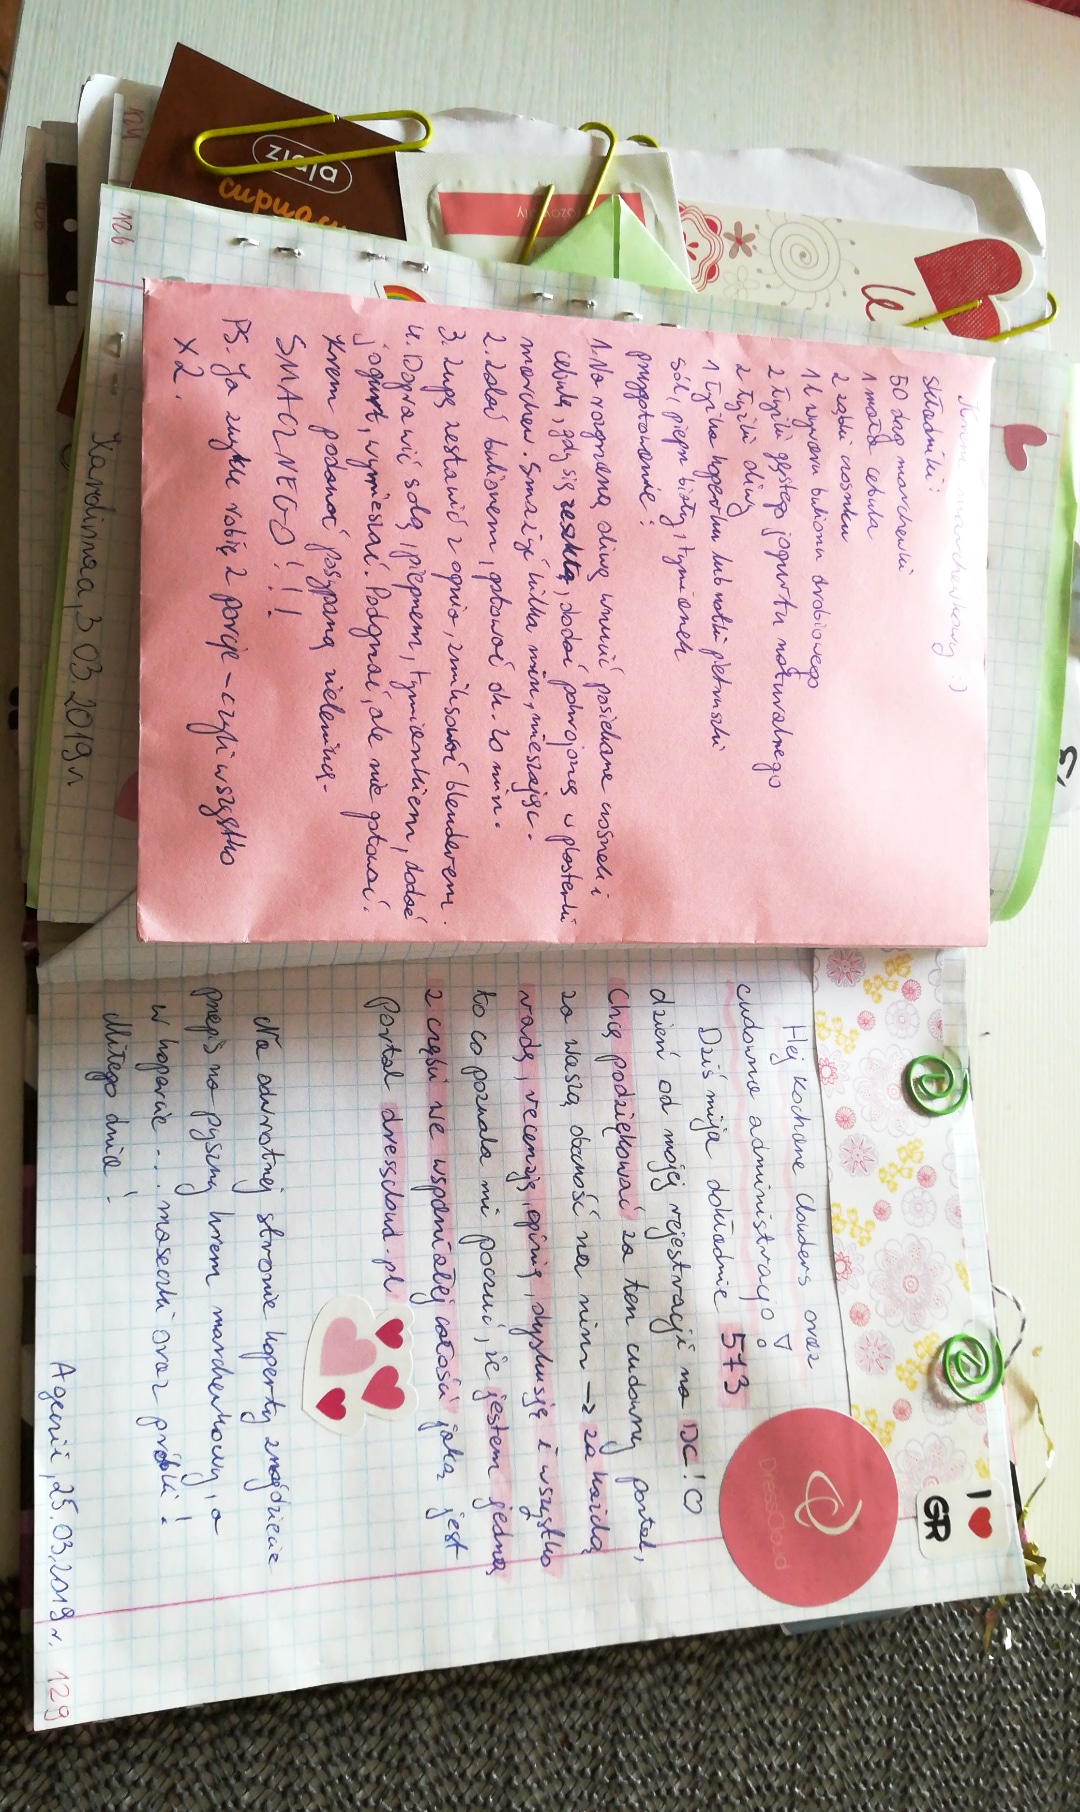 Krem marchewkowy :)
Składniki:
50 dag marchewki
1 mała cebula
2 ząbki czosnku
1 l wywaru bulionu drobiowego
2 łyżki gęstego jogurtu naturalnego
2 łyżki oliwy
1 łyżka koperku lub natki pietruszki
sól, pieprz biały, tymianek
przygotowanie:
1. Na rozgrzaną oliwę wrzucić posiekane czosnek i
cebulę, gdy się zeszklą, dodać pokrojoną w plasterki
marchew. Smażyć kilka min, mieszając.
2. Zalać bulionem, gotować ok. 20 min.
3. Zupę zestawić z ognia, zmiksować blenderem.
4. Doprawić solą, pieprzem, tymiankiem, dodać
jogurt, wymieszać. Podgrzać, ale nie gotować.
Krem podawać posypaną zieleniną.
SMACZNEGO!!!
PS. Ja zwykle robię 2 porcje - czyli wszystko
x2.
Karolinnaa, 3 03 2019r
126
124
ziaja
cupuacu
Hej kochane Clouders oraz
cudowna administracjo!
Dziś mija dokładnie 573
dzień od mojej rejestracji na DC! ♡
Chcę podziękować za ten cudowny portal,
za waszą obecność na nim → za każdą
radę, recenzję, opinię, dyskusję i wszystko
to co pozwala mi poczuć, że jestem jedną
z części we wspaniałej całości jaką jest
Portal dresscloud.pl
Na odwrotnej stronie koperty znajdziecie
przepis na pyszny krem marchewkowy, a
w kopercie... maseczki oraz próbki!
Miłego dnia!
Agenii, 25.03.2019 r.
129
DressCloud
I ♥
GR